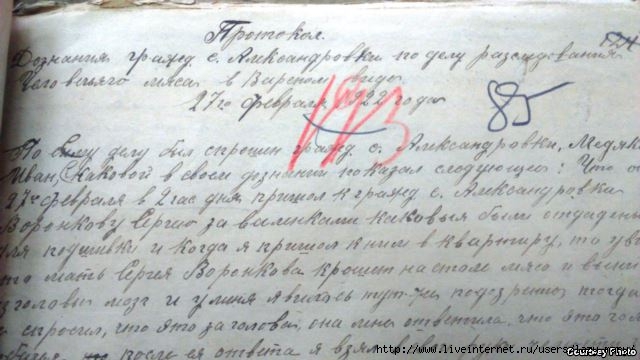 Протокол.
Дознания гражд с. Александровки по делу разследования
Человечьяго мяса в Вареном виде
27го февраля 1922 года
124
85
1923
По сему делу был спрошен гражд. с. Александровки, Медяк
Иван, Каковой в своем дознании показал следующее: Что
27го февраля в 2 час дня пришол к гражд с. Александровка
Воронкову Сергею за валенками каковыя были отданы
для подшивки и когда я пришол к ним в квартиру, то ув
что мать Сергея Воронкова крошет на столе мясо и выни
з головы мозг и у миня явилось тут-же подозрение тогда
я спросил, что это за голова, она мне ответила, что это
после ея ответа я взял
http://www.liveinternet.ru/users/
Courtesy Photo